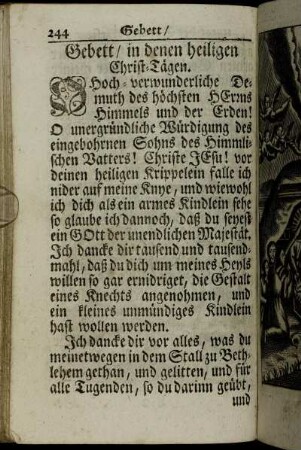 244 Gebett/
Gebett/ in denen heiligen
Christ-Tägen.
O Hoch-verwunderliche De-
muth des höchsten HErns
Himmels und der Erden!
O unergründliche Würdigung des
eingebohrnen Sohns des Himmli-
schen Vatters! Christe JEsu! vor
deinen heiligen Krippelein falle ich
nider auf meine Knye, und wiewohl
ich dich als ein armes Kindlein sehe
so glaube ich dannoch, daß du seyest
ein GOtt der unendlichen Majestät.
Ich dancke dir tausend und tausend-
mahl, daß du dich um meines Heyls
willen so gar ernidriget, die Gestalt
eines Knechts angenohmen, und
ein kleines unmündiges Kindlein
hast wollen werden.
Ich dancke dir vor alles, was du
meinetwegen in dem Stall zu Beth-
lehem gethan, und gelitten, und für
alle Tugenden, so du darinn geübt,
und